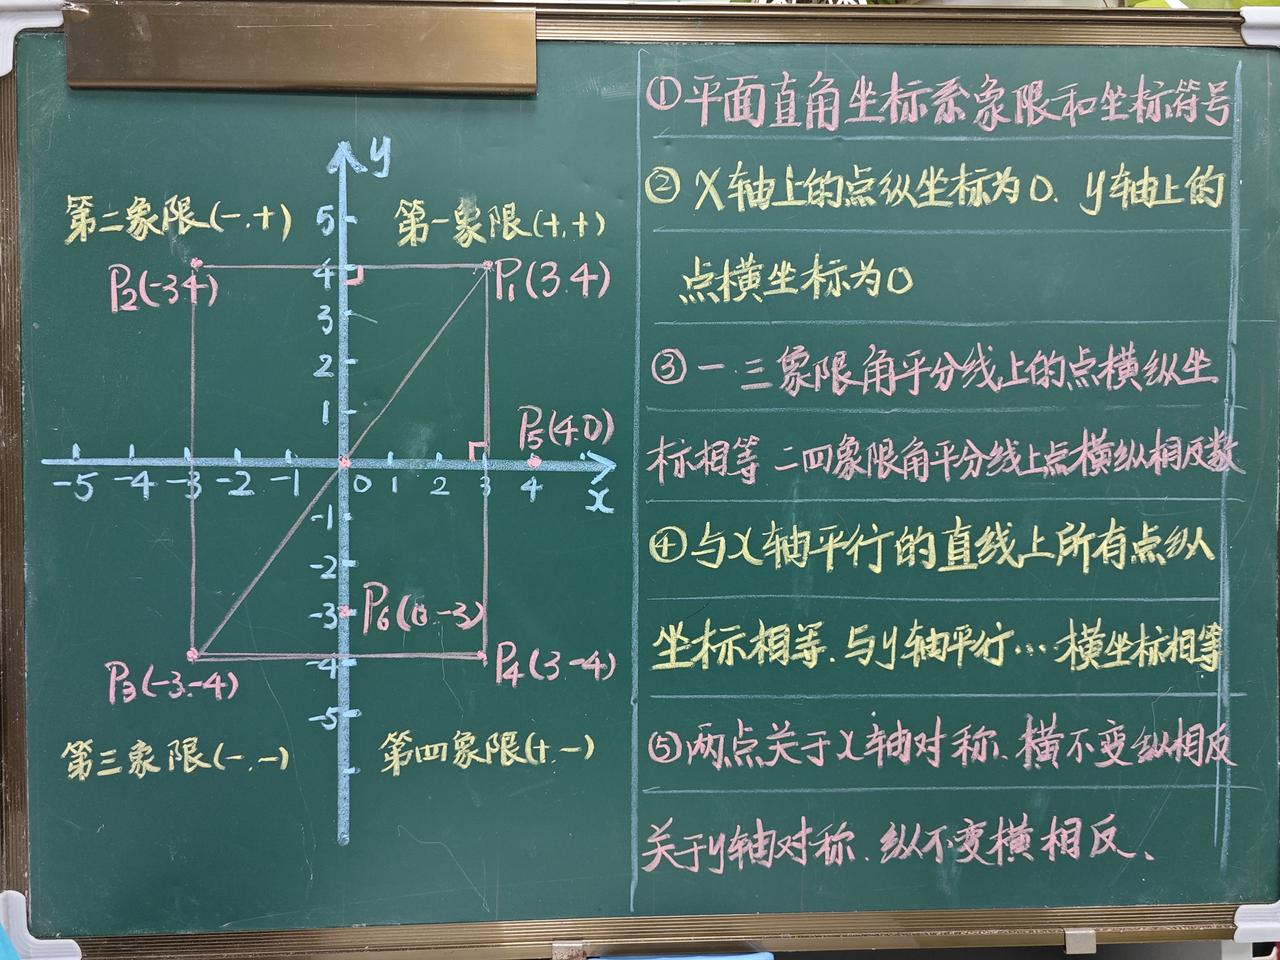 y
第二象限(-.+)
第一象限(+.+)
5
P2(-3 4)
4
P1(3.4)
3
2
1
P5(4.0)
-5 -4 -3 -2 -1 0 1 2 3 4
x
-1
-2
-3
P6(0.-3)
P3(-3.-4)
-4
P4(3-4)
-5
第三象限(-.-)
第四象限(+.-)
①平面直角坐标系象限和坐标符号
②X轴上的点纵坐标为0. y轴上的
点横坐标为0
③一.三象限角平分线上的点横纵坐
标相等 二四象限角平分线上点横纵相反数
④与x轴平行的直线上所有点纵
坐标相等.与y轴平行…横坐标相等
⑤两点关于x轴对称.横不变纵相反
关于y轴对称.纵不变横相反、